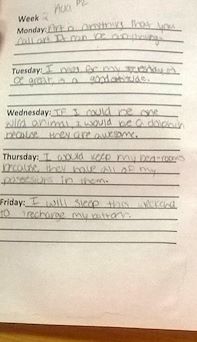 Week 2 Aug
Monday: Art is anything that you
call art It can be anything
Tuesday: I
be great, is a good attitude.
Wednesday: If I could be one
wild animal I would be a dolphin
because they are awesome.
Thursday: I would keep my bed-rooms
because, they have all of my
possesions in them.
Friday: I will sleep this weekend
to recharge my